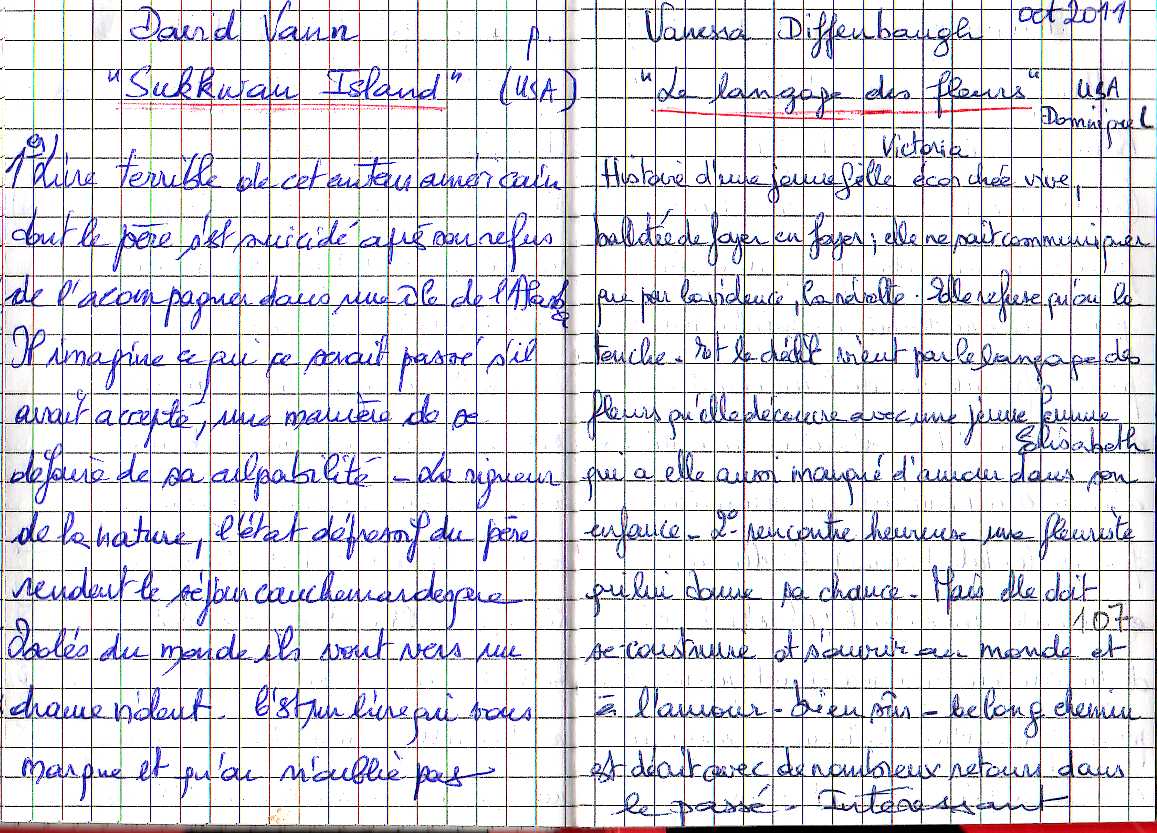 David Vann p.
"Sukkwan Island" (USA)
1er Livre terrible de cet auteur américain
dont le père s'est suicidé après son refus
de l'acompagner dans une île de l'Alaska
Il imagine ce qui ce serait passé s'il
avait accepté, une manière de se
defaire de sa culpabilité - La rigueur
de la nature, l'état dépressif du père
rendent le séjour cauchemardesque
Isolés du monde ils vont vers un
drame violent. C'est un livre qui vous
marque et qu'on n'oublie pas
oct 2011
Vanessa Diffenbaugh
"Le langage des fleurs" USA
Dominique L
Victoria
Histoire d'une jeune fille écorchée vive,
ballotée de foyer en foyer ; elle ne sait communiquer
que par la violence, la révolte. Elle refuse qu'on la
touche - Et le déclit vient par le langage des
fleurs qu'elle découvre avec une jeune femme
Elisabeth
qui a elle aussi manqué d'amour dans son
enfance - 2e rencontre heureuse une fleuriste
qui lui donne sa chance - Mais elle doit
107
se construire et s'ouvrir au monde et
à l'amour - bien sûr - ce long chemin
est décrit avec de nombreux retours dans
le passé - Intéressant